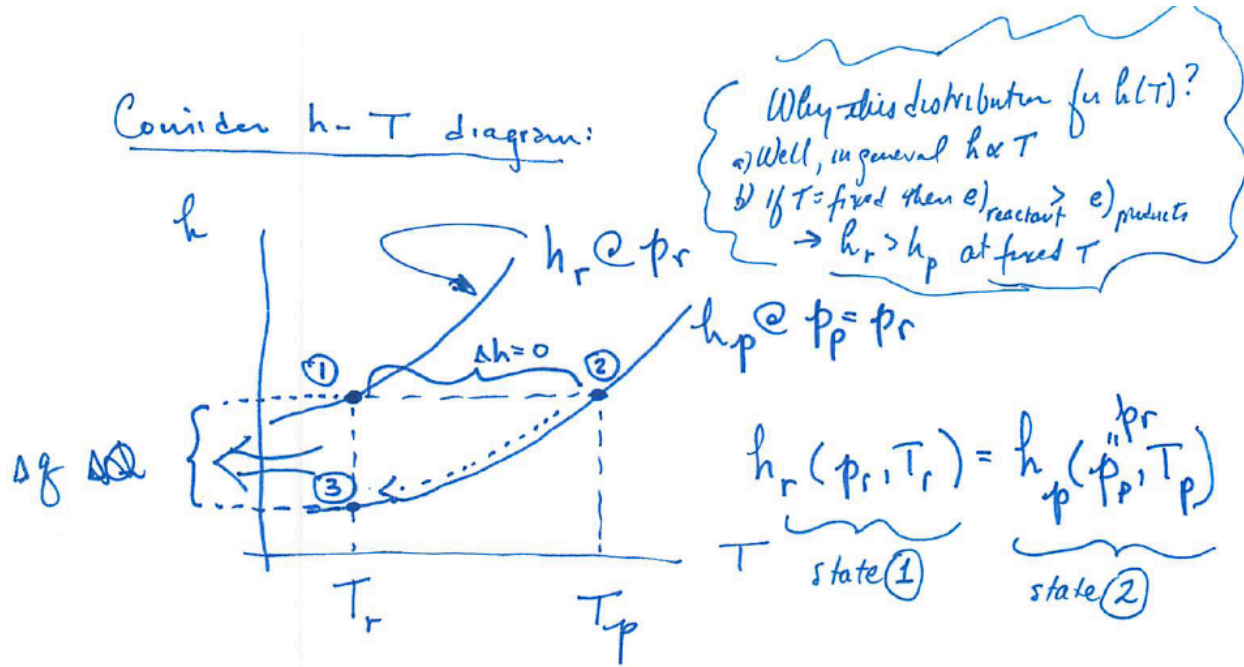 Consider h-T diagram:
Why this distribution for h(T)?
a) Well, in general h ∝ T
b) If T = fixed then e)reactant > e)products
→ h_r > h_p at fixed T
h
h_r @ p_r
h_p @ p_p = p_r
Δh=0
①
②
③
Δq
h_r (p_r, T_r) = h_p (p_p, T_p)
" p_r
state ①
state ②
T
T_r
T_p